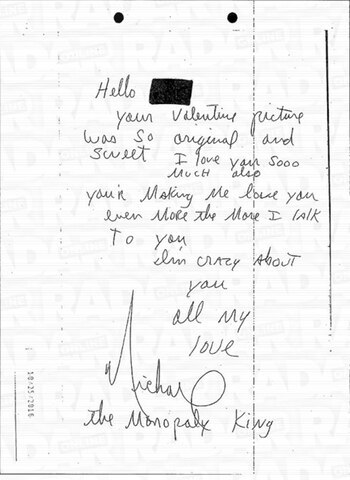 Hello
your Valentine picture
was so original and
sweet I love you sooo
much also
you'r Making Me love you
even More the More I talk
To you
I'm crazy About
you
all My
love
Michael
the Monopoly King
10/25/2016